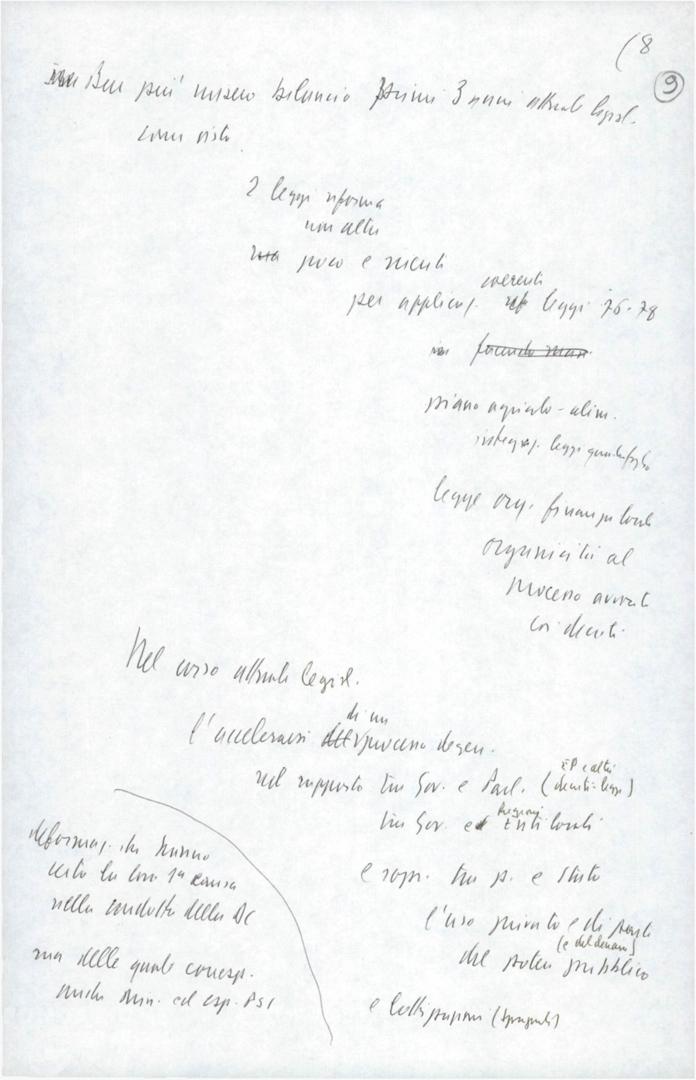 (8
9
Ben più misero bilancio primi 3 anni attuale legisl.
come visto
2 leggi riforma
non altri
ma poco e niente
coerenti
per applicaz. leggi 76-78
in facendo
piano agricolo-alim.
integraz. leggi
legge org. finanza locale
organicità al
processo avviato
coi decreti
Nel corso attuale legisl.
di un
l'accelerarsi del processo degen.
nel rapporto tra Gov. e Parl. (decreti-legge)
EP e altri
tra Gov. e Enti locali
Regioni
e sopr. tra p. e Stato
l'uso privato e di parte
(e del denaro)
del potere pubblico
e lottizzazioni
deformaz. che hanno
certo la loro 1ª causa
nella condotta della DC
ma delle quali
anche min. ed esp. PSI